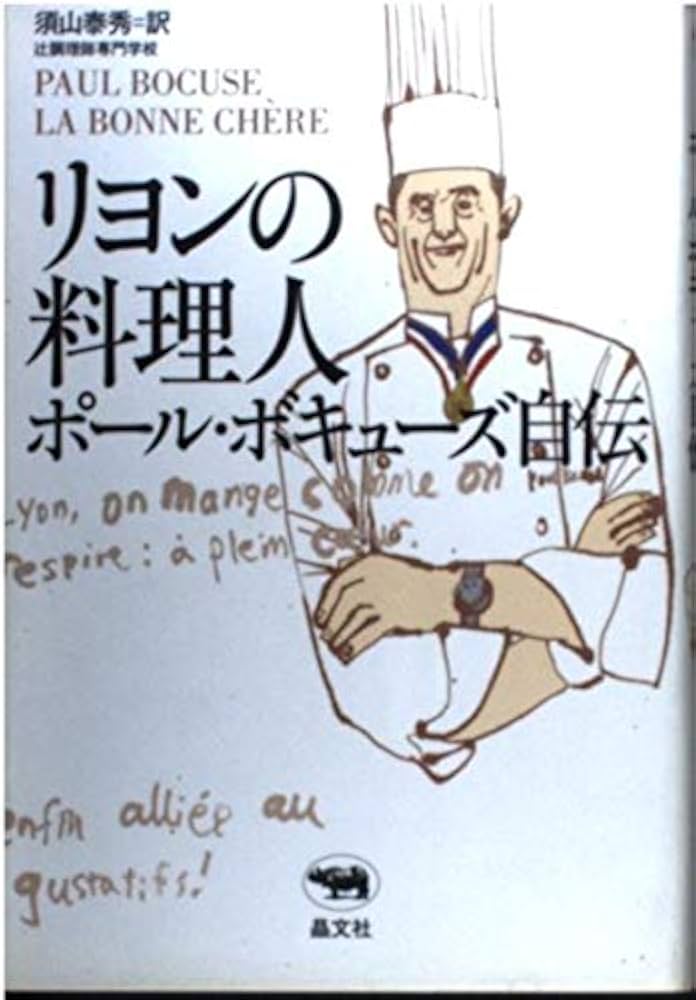 須山泰秀=訳
辻調理師専門学校
PAUL BOCUSE
LA BONNE CHÈRE
リヨンの
料理人
ポール・ボキューズ自伝
yon, on mange comme on
respire: à plein
enfin alliée au
gustatifs!
晶文社